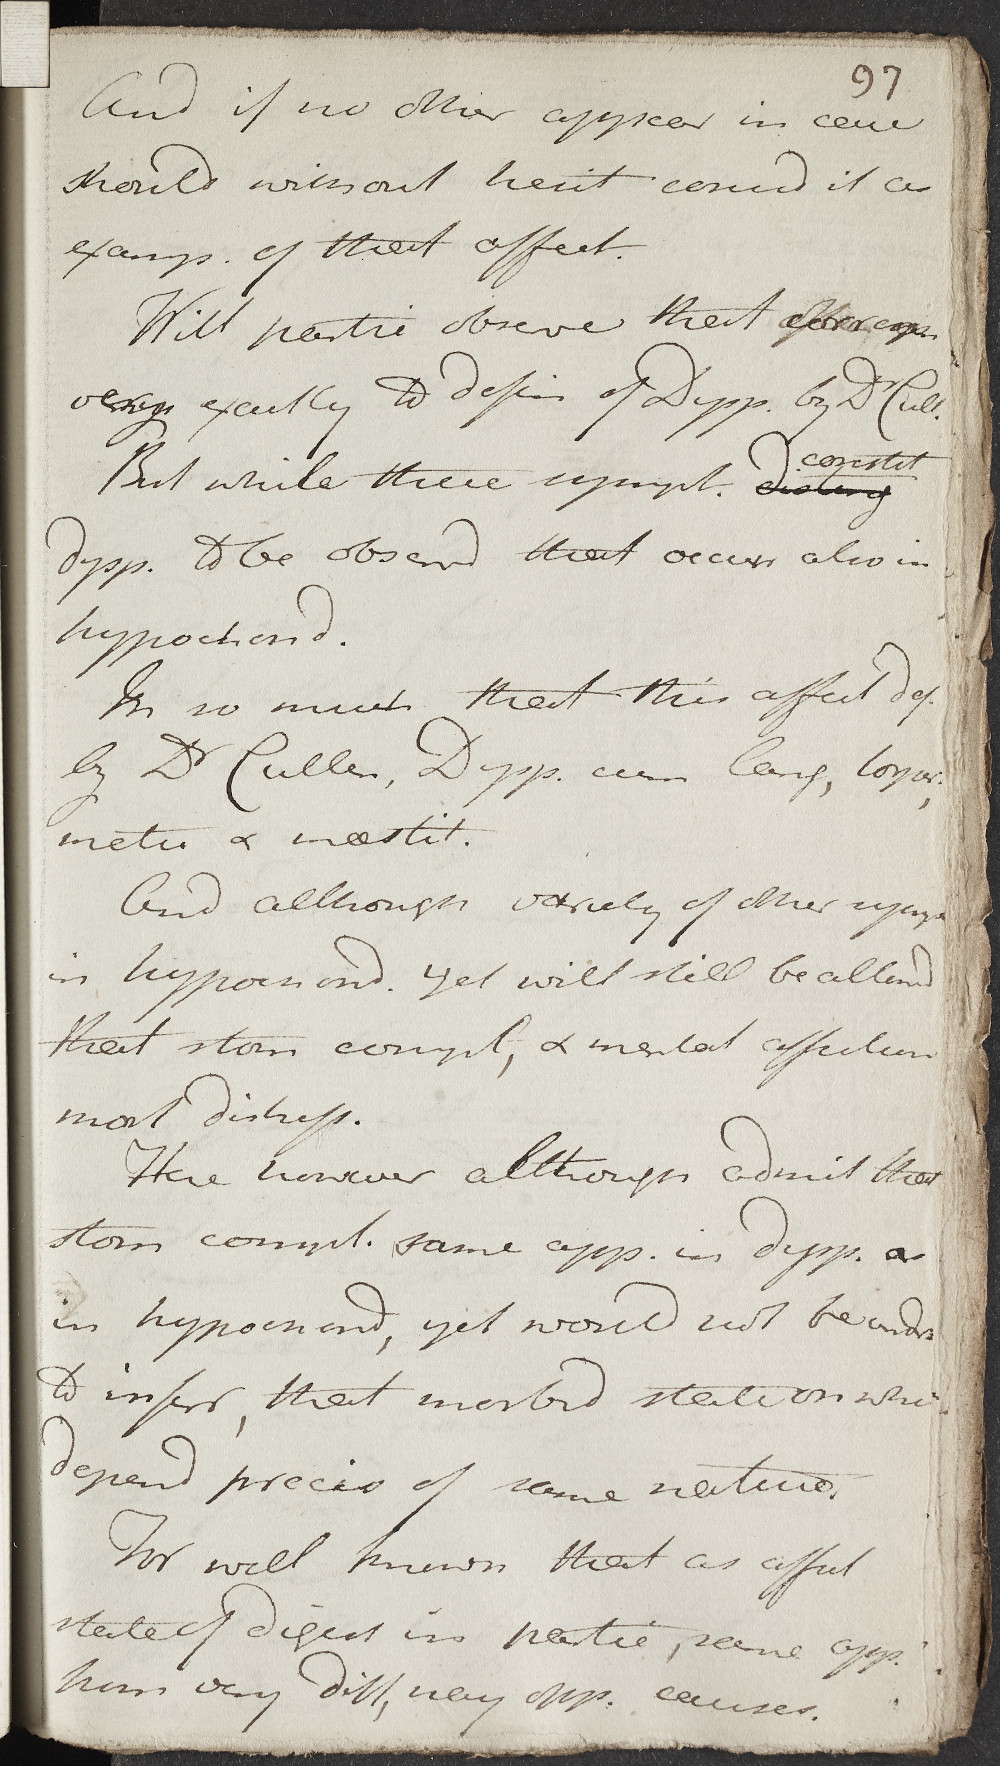 97
And if no other appear in case
should without hesit consid it as
examp. of that affect.
Will partic observe that corresp
very exactly to defin of Dysp. by Dr Cull.
But while these sympt. constit
dysp. to be observd that occur also in
hypochond.
In so much that this affect def.
by Dr Cullen, Dysp. cum lang, torpor,
metu & mæstit.
And although variety of other symp
in hypochond. yet will still be allowd
that stom compl, & mental affection
most distress.
Here however although admit that
stom compl. same app. in dysp. as
in hypochond, yet would not be underst
to infer, that morbid state on whi
depend precis of same nature.
For well known that as affect
state of digest in partic, same app.
from very diff, nay opp. causes.